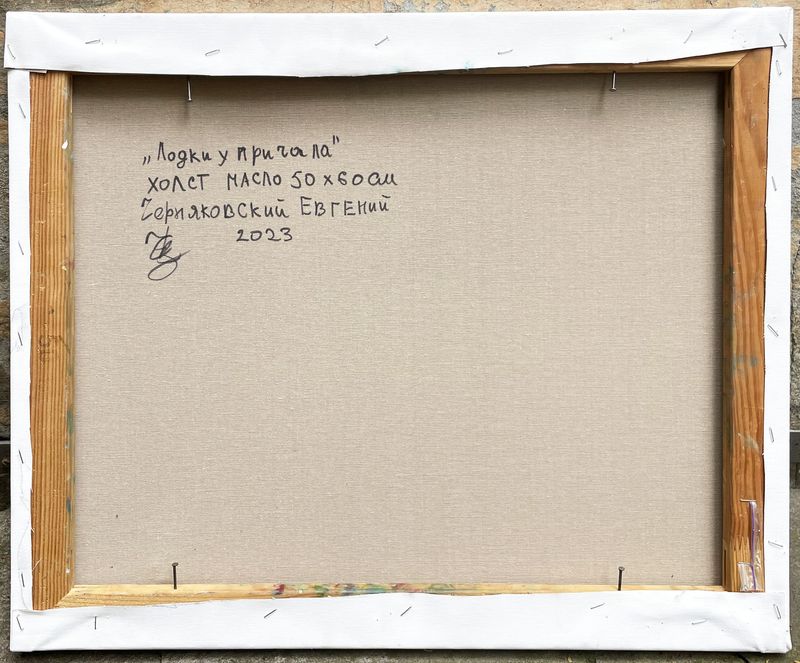 „Лодки у причала"
ХОЛСТ МАСЛО 50 х 60 см
Черняковский Евгений
2023